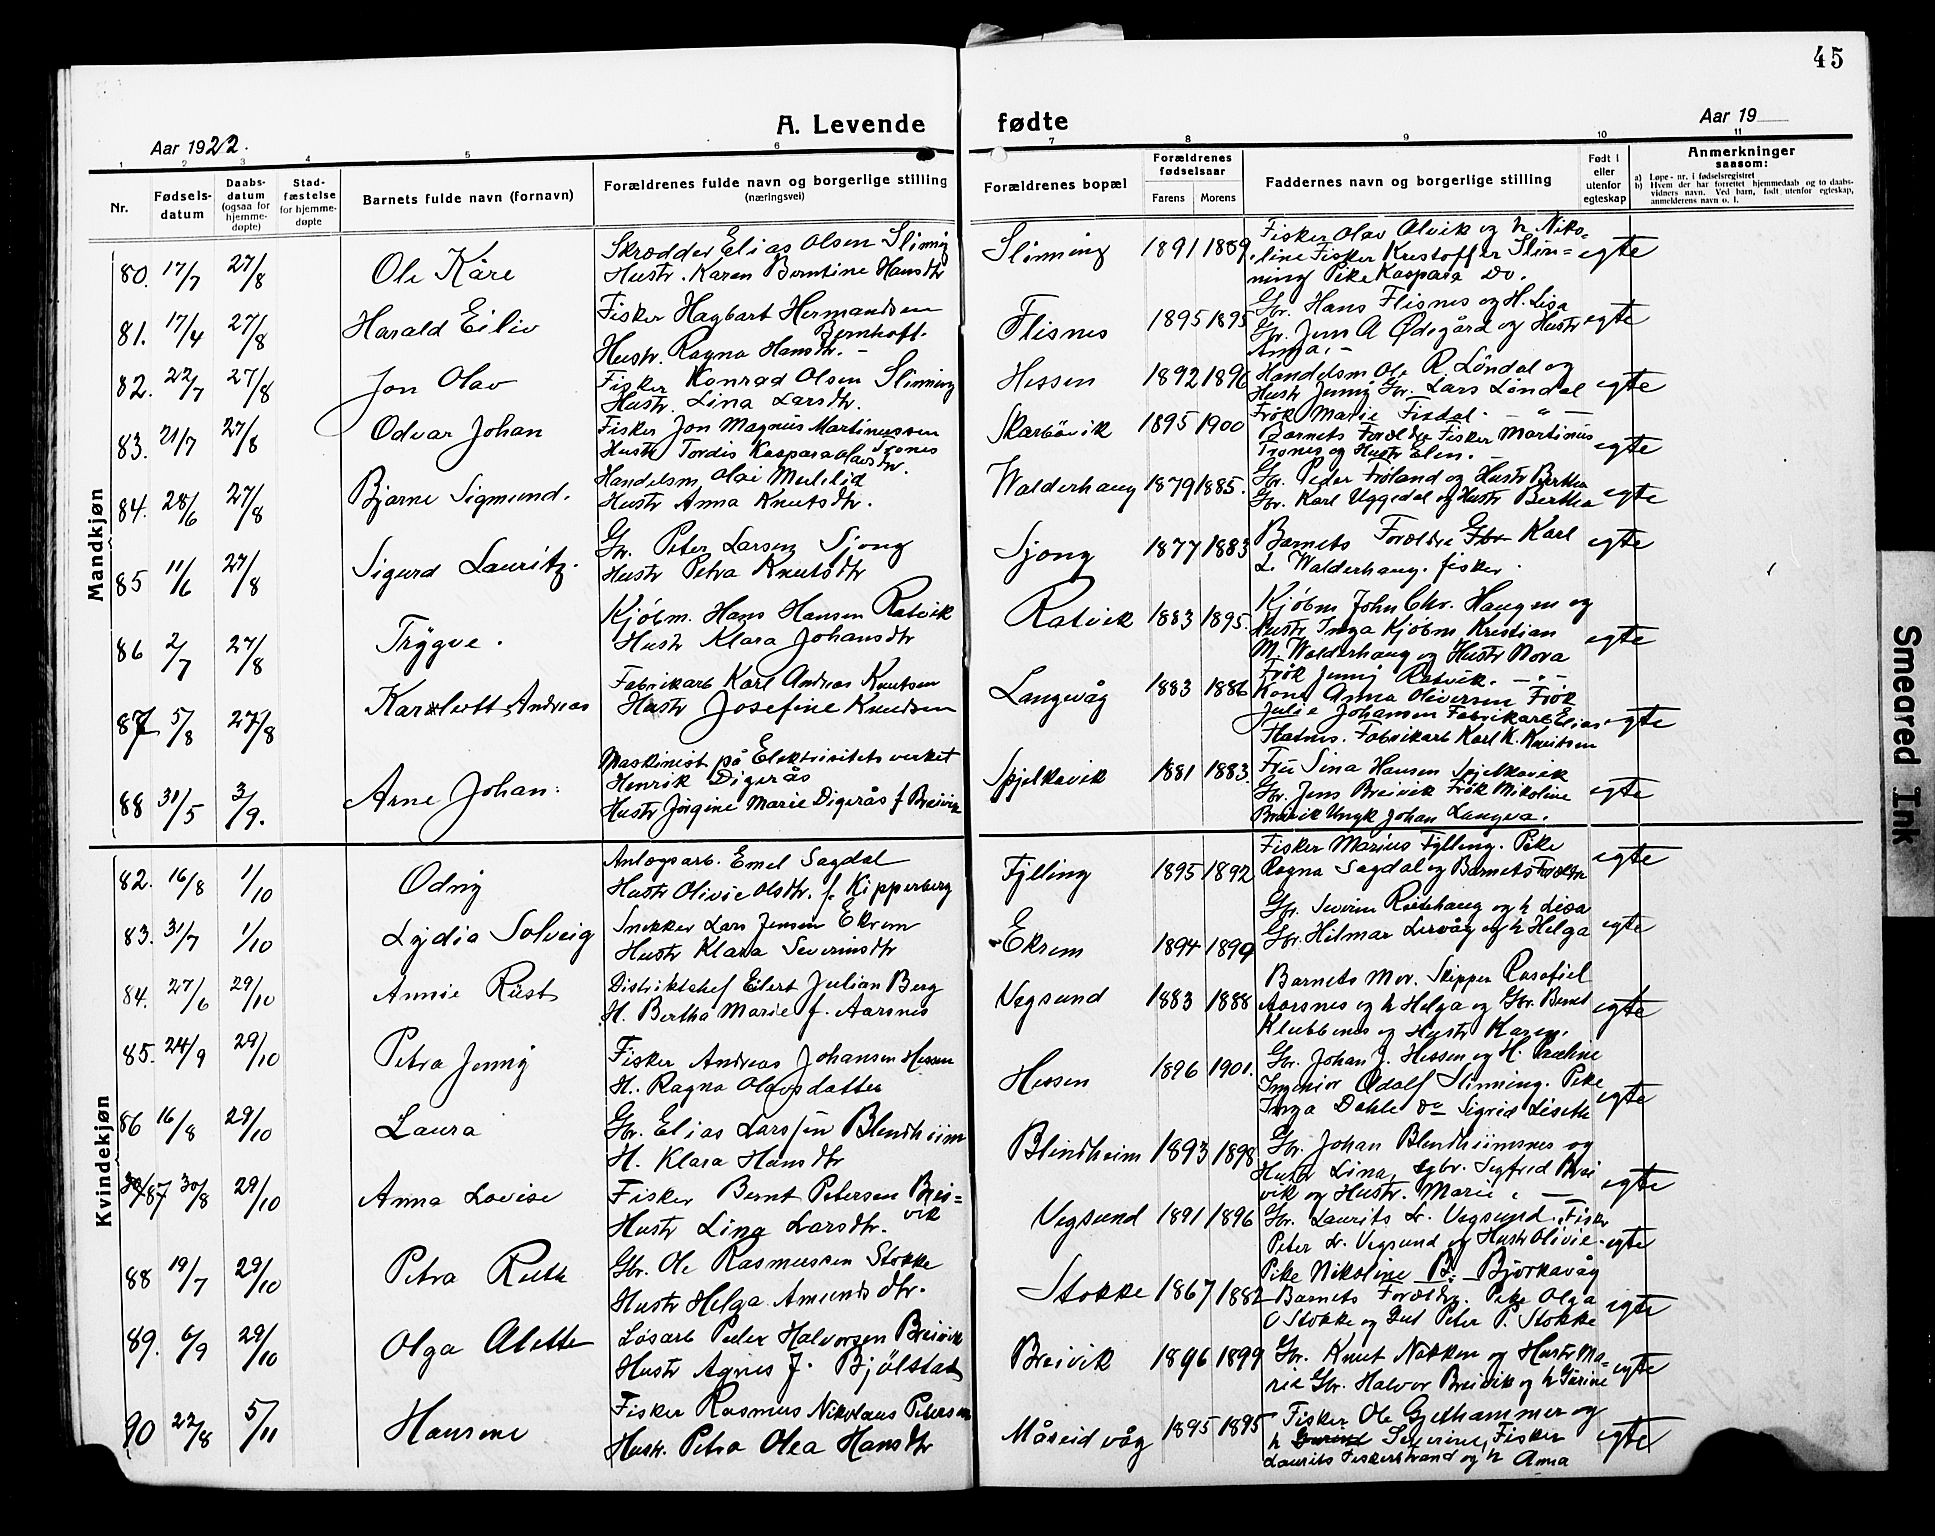 45
A. Levende fødte
Aar 1922.
Aar 19
1 2 3 4 5 6 7 8 9 10 11
Nr.
Fødsels-
datum
Daabs-
datum
(ogsaa for
hjemme-
døpte)
Stad-
fæstelse
for hjemme-
døpte
Barnets fulde navn (fornavn)
Forældrenes fulde navn og borgerlige stilling
(næringsvei)
Forældrenes bopæl
Forældrenes
fødselsaar
Farens Morens
Faddernes navn og borgerlige stilling
Født i
eller
utenfor
egteskap
Anmerkninger
saasom:
a) Løpe-nr. i fødselsregistret
b) Hvem der har forrettet hjemmedaab og to daabs-
vidners navn. Ved barn, født utenfor egteskap,
anmelderens navn o. l.
Mandkjøn
80. 17/7 27/8 Ole Kåre
Skrædder Elias Olsen Slinning
Hustr. Karen Berntine Hansdtr
Slinning 1891 1889
Fisker Olav Alvik og h. Niko-
line Fisker Kristoffer Slin-
ning Pike Kaspara Do.
egte
81. 17/4 27/8 Harald Eiliv
Fisker Hagbart Hermandsen
Bernhoft.
Hustr. Ragna Hansdtr. –
Flisnes 1895 1895
Gbr. Hans Flisnes og H. Lisa
Gbr. Jens A Ødegård og Hustr
Anna. –
egte
82. 22/7 27/8 Jon Olav
Fisker Konrad Olsen Slinning
Hustr. Lina Larsdtr.
Hessen 1892 1896
Handelsm Ole R Løndal og
Hustr Jenny Gbr. Lars Løndal
Frøk Marie Fisdal. – " –
egte
83. 21/7 27/8 Odvar Johan
Fisker Jon Magnus Martinussen
Trones
Hustr Tordis Kaspara Olavsdtr.
Skarbøvik 1895 1900
Barnets Forældre Fisker Martinus
Trones og Hustr Elen. –
egte
84. 28/6 27/8 Bjarne Sigmund.
Handelsm Olai Mulelid
Hustr Anna Knutsdtr.
Walderhaug 1879 1885.
Gbr. Peder Frøland og Hustr Bertha
Gbr. Karl Uggedal og Hustr Bertha
egte
85 11/6 27/8 Sigurd Lauritz.
Gbr. Peter Larsen Sjong
Hustr Petra Knutsdtr
Sjong 1877 1883
Barnets Forældre Gbr Karl
L. Walderhaug. fisker.
egte
86 2/7 27/8 Trygve.
Kjøbm. Hans Hansen Ratvik
Hustr Klara Johansdtr
Ratvik 1883 1895.
Kjøbm John Chr. Haugen og
Hustr Inga Kjøbm Kristian
M. Walderhaug og Hustr Nora
Frøk Jenny Ratvik. – " –
egte
87 5/8 27/8 Karlott Andreas
Fabrikarb Karl Andreas Knutsen
Hustr Josefine Knudsen
Langevåg 1883 1886
Kone Anna Oliversen Frøk
Julie Johansen Fabrikarb Elias
Flatnes. Fabrikarb Karl K. Knutsen
egte
88 31/5 3/9. Arne Johan.
Maskinist på Elektrisitetsverket
Henrik Digerås
Hustr Jørgine Marie Digerås f Breivik
Spjelkavik 1881 1883.
Fru Sina Hansen Spjelkavik
Gbr. Jens Breivik Frøk Nikoline
Breivik Ungk Johan Langva.
egte
Kvindekjøn
82. 16/8 1/10 Odny
Anlægsarb. Emel Sagdal
Hustr Olivie Olsdtr. f. Kipperberg
Fylling 1895 1892
Fisker Marius Fylling. Pike
Ragna Sagdal og Barnets Forældre
egte
83. 31/7 1/10 Lydia Solveig
Snekker Lars Jensen Ekrem
Hustr Klara Severinsdtr
Ekrem 1894 1890
Gbr. Severin Risehaug og h Lisa
Gbr. Hilmar Lervåg og h Helga
egte
84. 27/6 29/10 Annie Rüst
Distriktchef Eilert Julian Berg
H. Bertha Marie f. Aarsnes
Vegsund 1883 1888
Barnets Mor. Skipper Rasofiel
Aarsnes og h Helga og Gbr. Bernt
Klubbenes og Hustr Karen.
egte
85. 24/9 29/10 Petra Jenny
Fisker Andreas Johansen Hessen
H. Ragna Olavsdatter
Hessen 1896 1901.
Gbr. Johan J. Hessen og H. Pauline
Ingeniør Odolf Slinning. Pike
Inga Dahle Do Sigrid Liseth
egte
86 16/8 29/10 Laura
Gbr. Elias Larssen Blendheim
H. Klara Hansdtr
Blindheim 1893 1898
Gbr. Johan Blendheimsnes og
Hustr Lina, gbr. Sigfred Brei
vik og Hustr. Marie. –
egte
87 30/8 29/10 Anna Lovise
Fisker Bernt Petersen Brei-
vik
Hustr Lina Larsdtr.
Vegsund 1891 1896
Gbr. Laurits L. Vegsund. Fisker
Peter L. Vegsund og Hustr Olivie.
Pike Nikoline B. Bjørkavåg
egte
88 19/7 29/10 Petra Ruth
Gbr. Ole Rasmussen Stokke
Hustr Helga Amundsdtr.
Stokke 1867 1882
Barnets Forældre. Pike Olga
O Stokke og Gut Peter P. Stokke
egte
89. 6/9 29/10 Olga Alette
Løsarb Peder Halvorsen Breivik
Hustr Agnes J. Bjølstad
Breivik 1896 1899
Gbr. Knut Nakken og Hustr Ma-
rie Gbr. Halvor Breivik og h Gurine
egte
90 22/8 5/11 Hansine
Fisker Rasmus Nikolaus Petersen
Hustr. Petra Olea Hansdtr
Måseidvåg 1895 1895
Fisker Ole Gjethammer og
h Severine, Fisker
Laurits Fiskerstrand og h Anna
egte
Smeared Ink